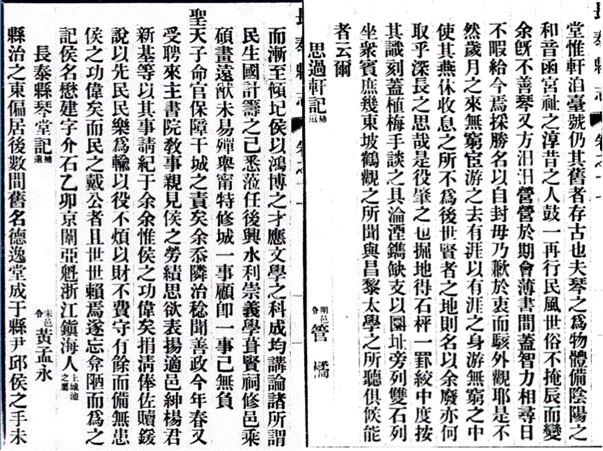 長泰縣志 卷之十一
堂惟軒泊臺號仍其舊者存古也夫琴之為物體備陰陽之
和音函宮祉之淳昔之人鼓一再行民風世俗不掩辰而變
余既不善琴又方汨汨營營於期會薄書間蓋智力相尋日
不暇給今焉採勝名以自封毋乃歉於衷而駭外觀耶是不
然歲月之來無窮宦游之去有涯以有涯之身游無窮之中
使其燕休收息之所不為後世賢者之地則名以余廢亦何
取乎深長之思哉是役肇之也掘地得石枰一罫紋中度按
其識刻蓋植梅手談之具淪湮鐫缺支以園址旁列雙石列
坐衆賓庶幾東坡鶴觀之所聞與昌黎太學之所聽俱候能
者云爾
思過軒記補遺 明邑令 管橘
長泰縣志 卷之十一
而漸至頹圮侯以鴻博之才應文學之科成均講論諸所謂
民生國計籌之已悉涖任後興水利崇義學葺賢祠修邑乘
碩畫遠猷未易殫舉甯特修城一事顧卽一事已無負
聖天子命官保障干城之責矣余忝隣治稔聞善政今年春又
受聘來主書院敎事親見侯之勞績思欲表揚適邑紳楊君
新基等以其事請紀于余余惟侯之功偉矣捐淸俸佐贖鍰
說以先民民樂為輸以役不煩以財不費守有餘而備無患
侯之功偉矣而民之戴公者且世世賴焉遂忘弇陋而為之
記侯名懋建字介石乙卯京闈亞魁浙江鎭海人主城池之屬
長泰縣琴堂記補遺 宋邑令 黃孟永
縣治之東偏居後數間舊名德逸堂成于縣尹邱侯之手未